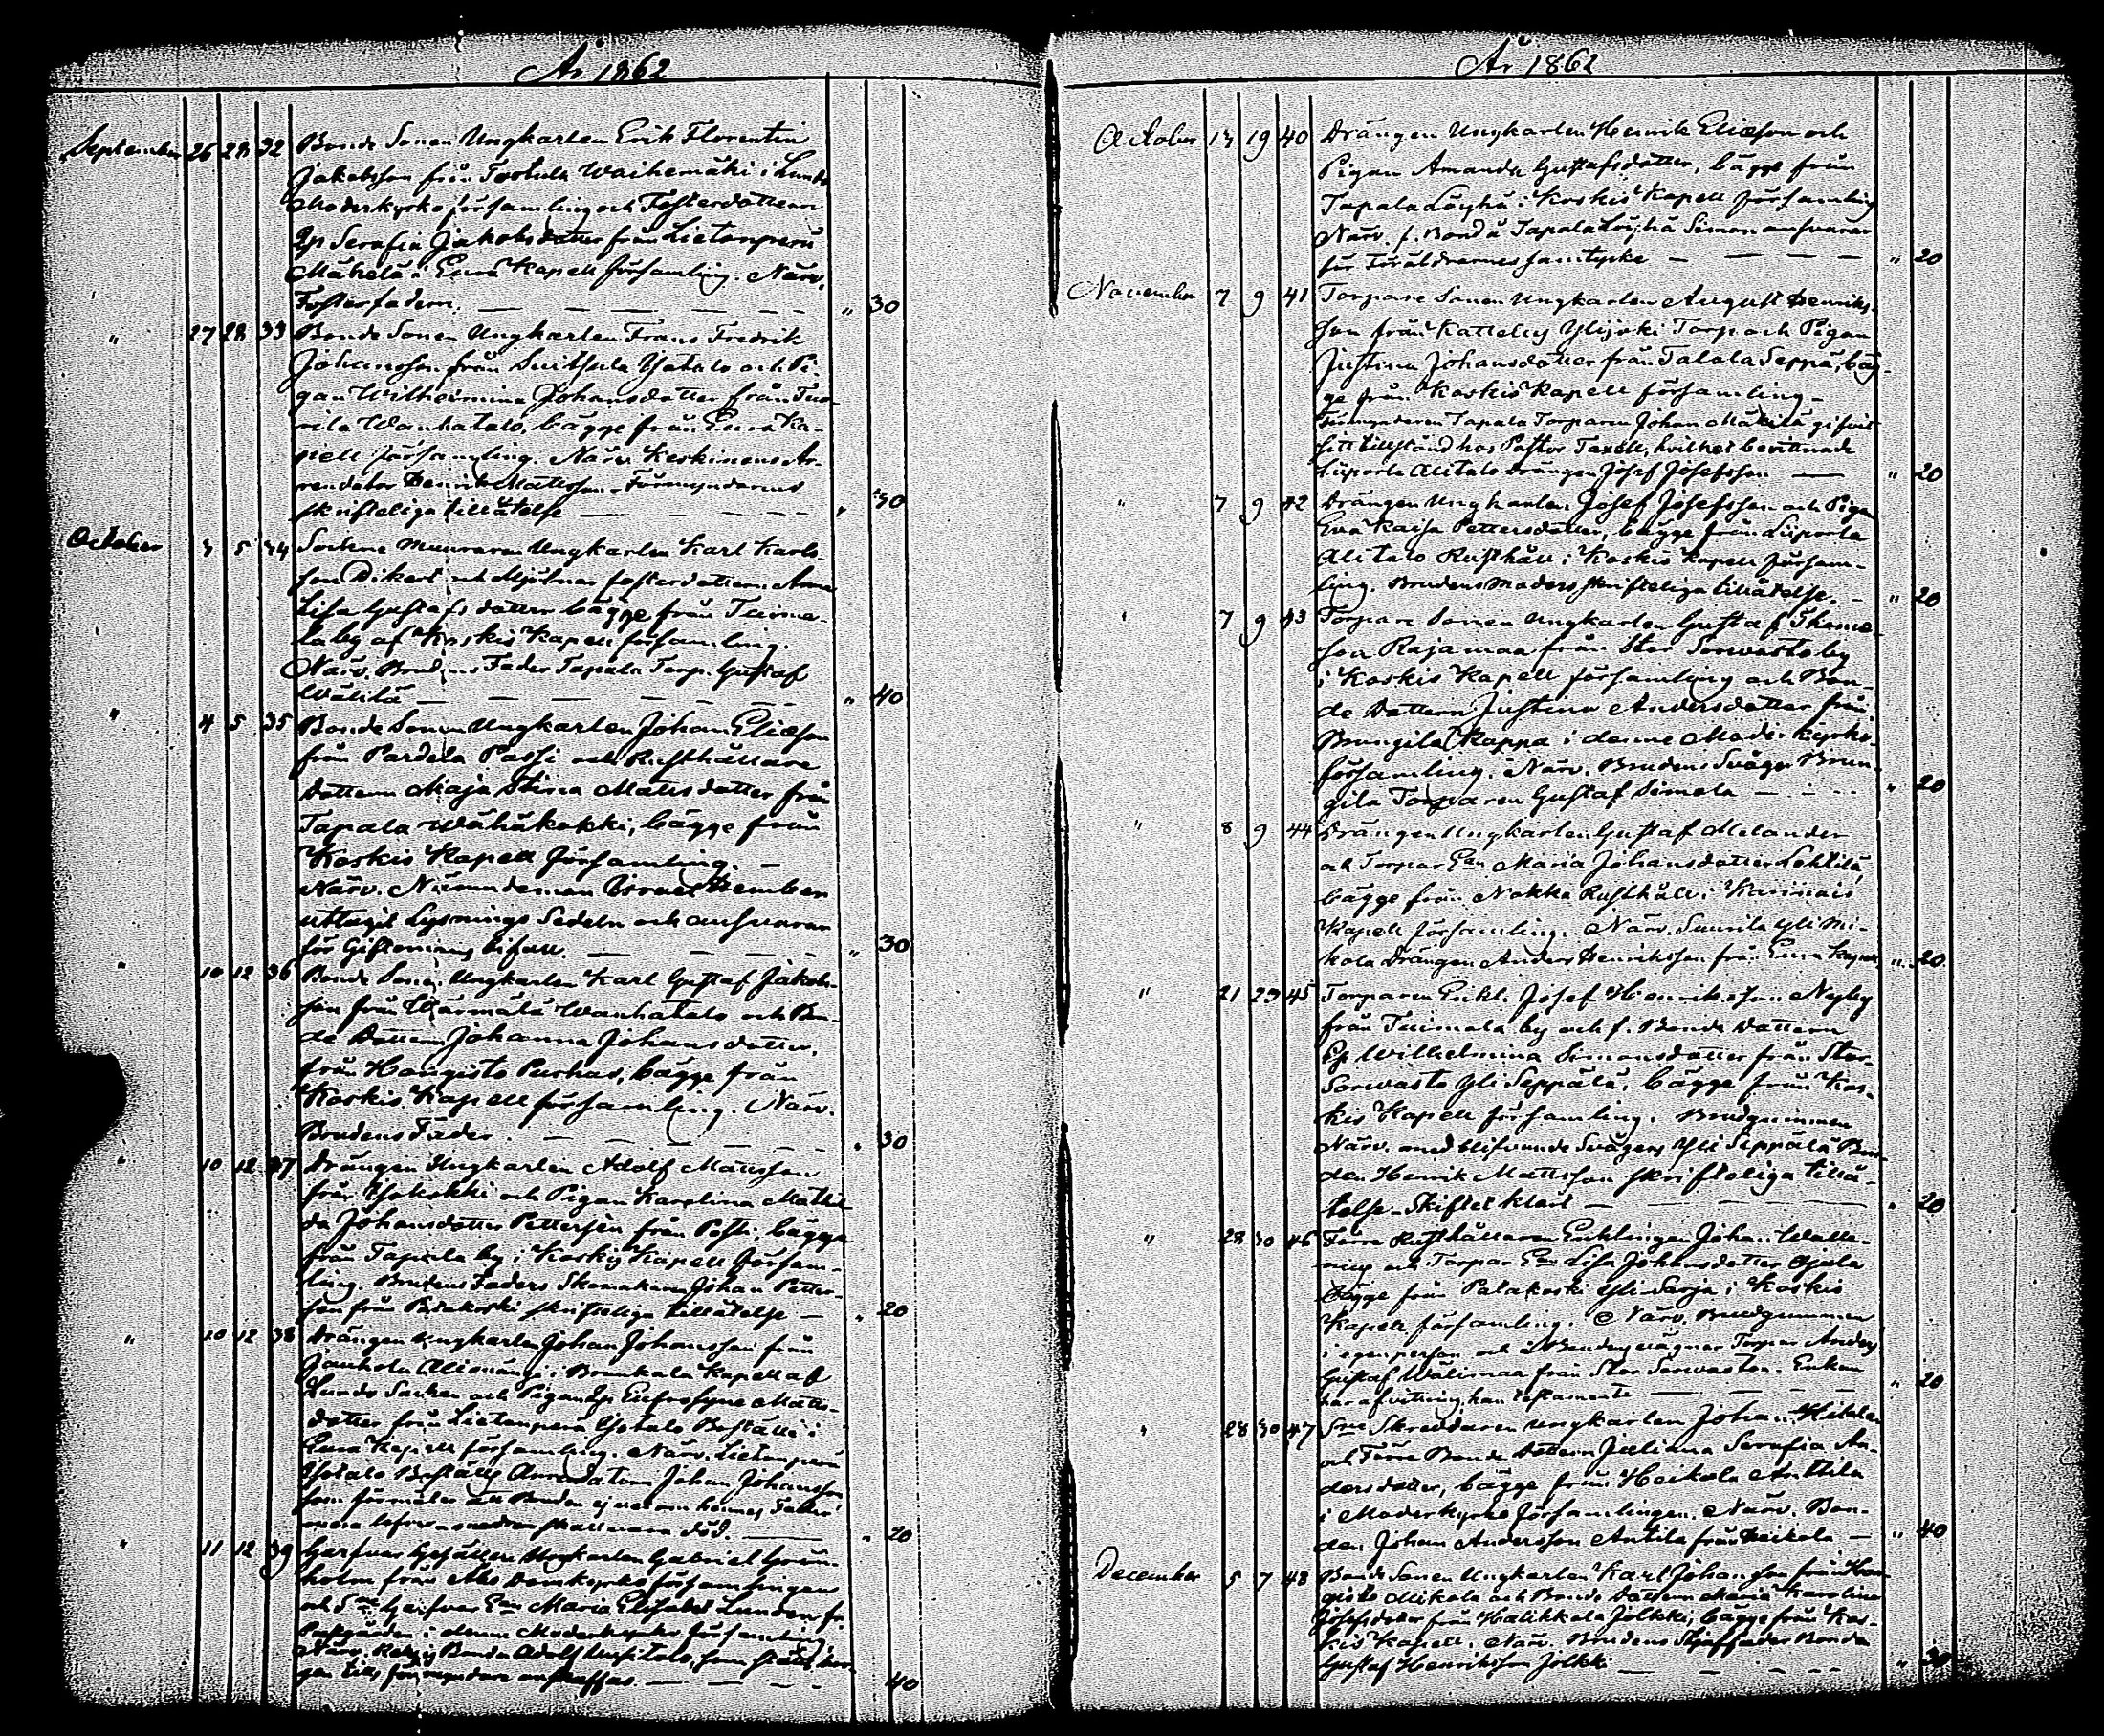 År 1862
September 26 28 32 Bonde Sonen Ungkarlen Erik Florentin
Jakobsson från Tortula Waihemäki i Lundo
Moderkyrko församling och Fosterdottern
Ep Serafia Jakobsdotter från Lietonperä
Mäkelä i Eura Kapell församling. Närv.
Fosterfadern. — — — — „ 30
„ 27 28 33 Bonde Sonen Ungkarlen Frans Fredrik
Johansson från Suitsula Ysätalo och Pi-
gan Wilhelmina Johansdotter från Tuo-
rila Wanhatalo, bägge från Eura Ka-
pell församling. Närv. Keskinens Ar-
rendator Henrik Mattsson. Förmyndarens
skrifteliga tillåtelse — — — „ 30
October 3 5 34 Sockne Muuraren Ungkarlen Karl Karls-
son Dikert och Mjölnar fosterdottern Anna
Lisa Gustafsdotter bägge från Tuima-
la by af Koskis Kapell församling.
Närv. Brudens Fader Tapala Torp. Gustaf
Wälilä — — — — „ 40
„ 4 5 35 Bonde Sonen Ungkarlen Johan Eliasson
från Pardela Passi och Rusthållare
Dottern Maja Stina Mattsdotter från
Tapala Wähäkokki, bägge från
Koskis Kapell församling. —
Närv. Nämndeman Israel Hember
uttagit Lysnings Sedeln och ansvarar
för Giftomans bifall. — — — „ 30
„ 10 12 36 Bonde Sonen Ungkarlen Karl Gustaf Jakobs-
son från Wärmälä Wanhatalo och Bon-
de Dottern Johanna Johansdotter,
från Hongisto Purhas, bägge från
Koskis Kapell församling. Närv.
Brudens Fader. — — — — „ 30
„ 10 12 37 Drängen Ungkarlen Adolf Mattsson
från Ysokokki och Pigan Karolina Mathil-
da Johansdotter Pettersèn från Posti, bägge
från Tapala by i Koskis Kapell försam-
ling. Brudens Faders Skomakaren Johan Petter-
sèn från Palakoski skrifteliga tillåtelse — „ 20
„ 10 12 38 Drängen Ungkarlen Johan Johansson från
Alionänsi i Brunkala Kapell af
Lundo Socken och Pigan Ep Eufrosyne Matts-
dotter från Lietonperä Ysotalo Boställe i
Eura Kapell församling. Närv. Lietonperä
Ysotalo Boställs Arrendatorn Johan Johansson
som förmäler att Bruden ej vet om hennes Fader
mera lefver — modren skall vara död. — „ 20
„ 11 12 39 Garfvar Gesällen Ungkarlen Gabriel Grön-
holm från Åbo Domkyrko församlingen
och Garfvar Enkan Maria Elisabet Lunden fr.
i denna Moderkyrko församling.
Närv. Bonden Adolf Uusitalo, som
förmyndare anskaffas. — — „ 40
År 1862
October 17 19 40 Drängen Ungkarlen Henrik Eliasson och
Pigan Amanda Gustafsdotter, bägge från
Tapala Löyhä i Koskis Kapell församling
Närv. f. Bond. å Tapala Löyhä Simon ansvarar
för Föräldrarnes samtycke — — — „ 20
November 7 9 41 Torpare Sonen Ungkarlen August Henriks-
son från Katteby Ylijoki Torp och Pigan
Justina Johansdotter från Talala Seppä, bäg-
ge från Koskis Kapell församling —
Förmyndaren Tapala Torparen Johan Mäkilä gifvit
sitt tillstånd hos Pastor Taxell, hvilket bevittnade
Liiporla Alitalo Drängen Josef Josefsson — „ 20
„ 7 9 42 Drängen Ungkarlen Josef Josefsson och Pigan
Eva Kaisa Pettersdotter, bägge från Liiporla
Alitalo Rusthåll i Koskis Kapell försam-
ling. Brudens Moders skrifteliga tillåtelse. — „ 20
„ 7 9 43 Torpare Sonen Ungkarlen Gustaf Thoma-
son Rajamaa från Stor Sorwasto by
i Koskis Kapell församling och Bon-
de Dottern Justina Andersdotter från
Brungila Kappa i denna Moder kyrko
församling. Närv. Brudens Svåger Brun-
gila Torparen Gustaf Simola — — „ 20
„ 8 9 44 Drängen Ungkarlen Gustaf Melander
och Torpar Enkan Maria Johansdotter Lehtilä,
bägge från Nokka Rusthåll i Karinais
Kapell församling. Närv. Suurila Yli Mi-
kola Drängen Anders Henriksson från Eura Kapell „ 20
„ 21 23 45 Torparen Enkl. Josef Henriksson Nyby
från Tuimala by och f. Bonde Dottern
Ep Wilhelmina Simonsdotter från Stor
Sorwasto Yli Seppälä, bägge från Kos-
kis Kapell församling. Brudgummen
Närv. med blifvande Svågers Yli Seppälä Bon-
den Henrik Mattsson skrifteliga tillå-
telse — Skiftet klart — — „ 20
„ 28 30 46 Förre Rusthållaren Enklingen Johan Walle-
nius och Torpar Enkan Lisa Johansdotter Ojala
bägge från Palakoski Yli Sarja i Koskis
Kapell församling. Närv. Brudgummen
i egen person och å Brudens vägnar Torpar Anders
Gustaf Wälimaa från Stor Sorwasto. Enkan
har afvittring han testamente — — „ 20
„ 28 30 47 Skreddaren Ungkarlen Johan Hilden
och Förre Bonde Dottern Juliana Serafia An-
dersdotter, bägge från Heikola Anttila
i Moderkyrko församlingen. Närv. Bon-
den Johan Andersson Antila från Heikola — „ 40
December 5 7 48 Bonde Sonen Ungkarlen Karl Johansson från Hon-
gisto Mikola och Bonde Dottern Maria Karolina
Josefsdotter från Halikkala Jolkki, bägge från Kos-
kis Kapell. Närv. Brudens Styffader Bonden
Gustaf Henriksson Jolkki — — — „ 30